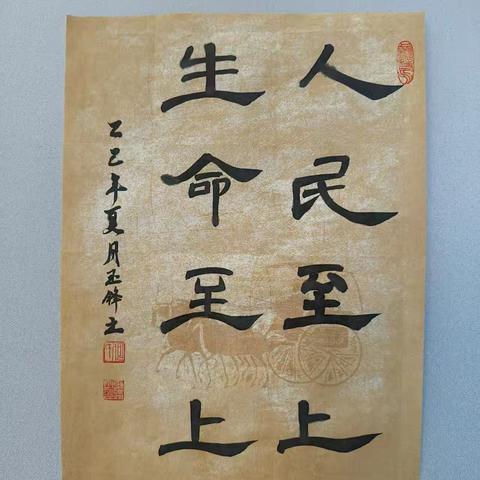 人民至上
生命至上
乙巳年夏月玉锋书